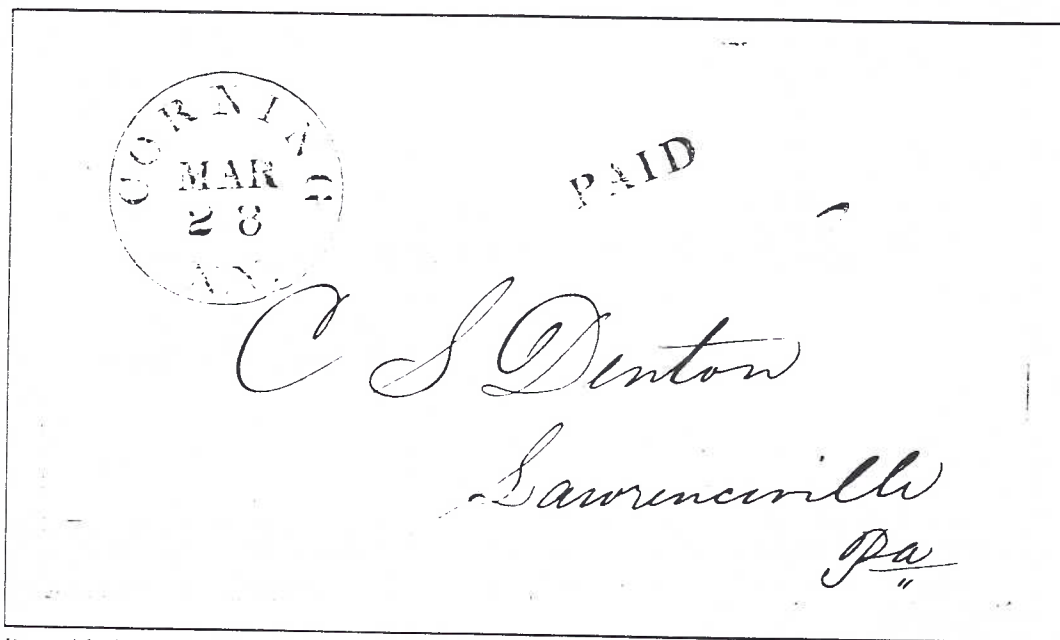 CORNING
MAR
28
N.Y.
PAID
C S Denton
Lawrenceville
Pa